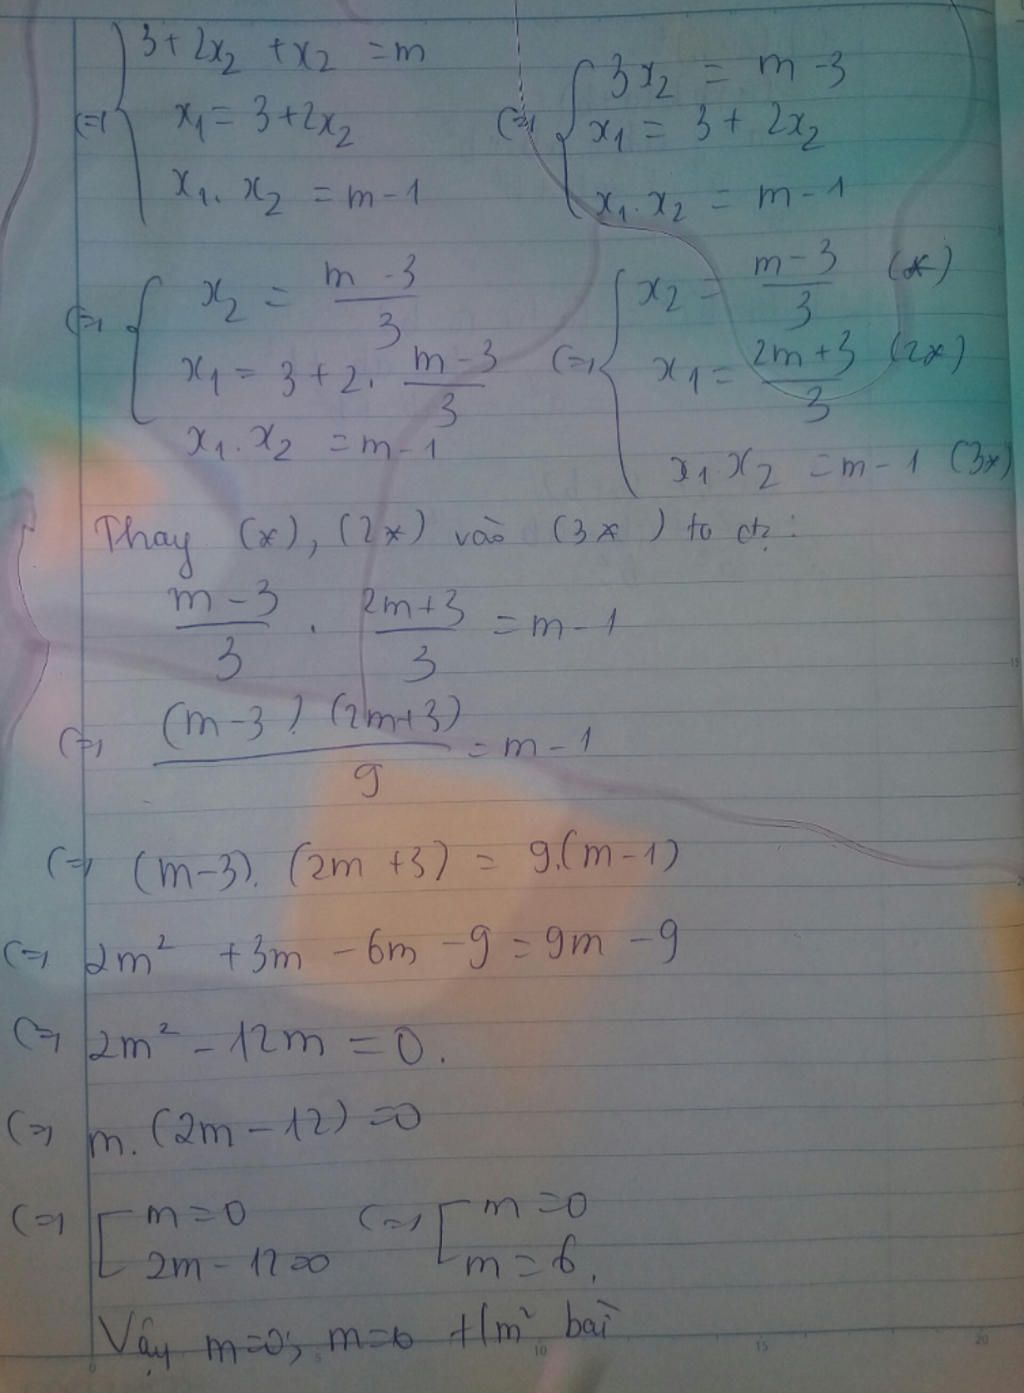 (=) { 3 + 2x₂ + x₂ = m
x₁ = 3 + 2x₂
x₁. x₂ = m - 1
(=) { 3x₂ = m - 3
x₁ = 3 + 2x₂
x₁. x₂ = m - 1
(=) { x₂ = (m - 3)/3
x₁ = 3 + 2. (m - 3)/3
x₁. x₂ = m - 1
(=) { x₂ = (m - 3)/3 (*)
x₁ = (2m + 3)/3 (2*)
x₁. x₂ = m - 1 (3*)
Thay (*), (2*) vào (3*) ta đc:
(m - 3)/3 . (2m + 3)/3 = m - 1
(=) (m - 3). (2m + 3)/9 = m - 1
(=) (m - 3). (2m + 3) = 9.(m - 1)
(=) 2m² + 3m - 6m - 9 = 9m - 9
(=) 2m² - 12m = 0.
(=) m. (2m - 12) = 0
(=) [ m = 0
2m - 12 = 0
(=) [ m = 0
m = 6.
Vậy m = 0; m = 6 t/m² bài